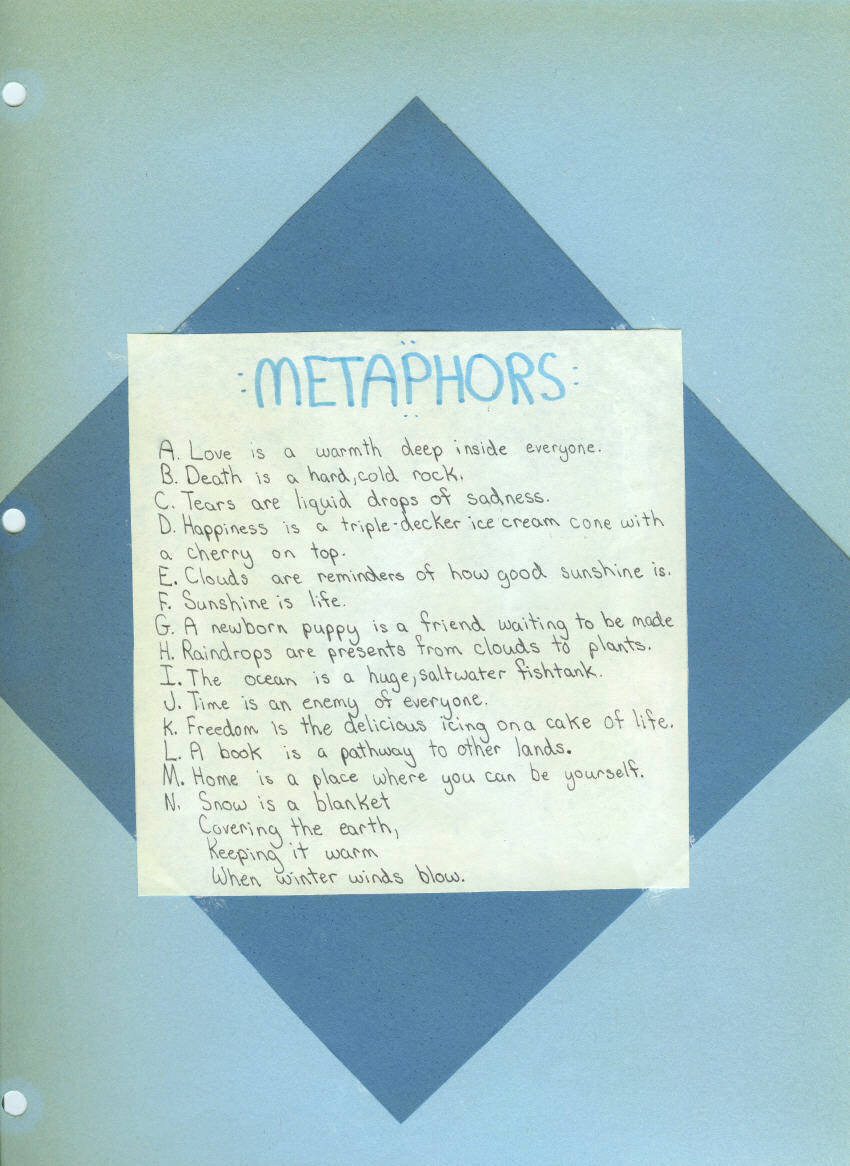 :METAPHORS:
A. Love is a warmth deep inside everyone.
B. Death is a hard, cold rock.
C. Tears are liquid drops of sadness.
D. Happiness is a triple-decker ice cream cone with
a cherry on top.
E. Clouds are reminders of how good sunshine is.
F. Sunshine is life.
G. A newborn puppy is a friend waiting to be made
H. Raindrops are presents from clouds to plants.
I. The ocean is a huge, saltwater fishtank.
J. Time is an enemy of everyone.
K. Freedom is the delicious icing on a cake of life.
L. A book is a pathway to other lands.
M. Home is a place where you can be yourself.
N. Snow is a blanket
Covering the earth,
Keeping it warm
When winter winds blow.